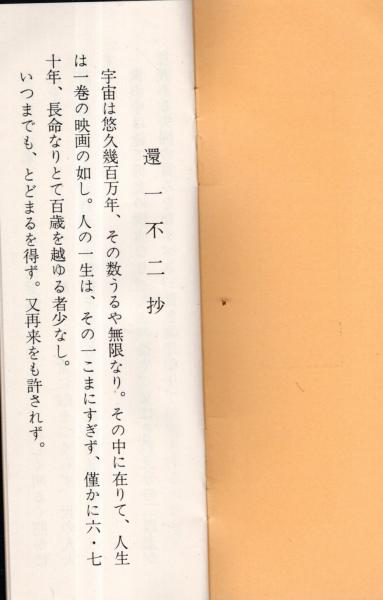 還一不二抄
宇宙は悠久幾百万年、その数うるや無限なり。その中に在りて、人生
は一巻の映画の如し。人の一生は、その一こまにすぎず、僅かに六・七
十年、長命なりとて百歳を越ゆる者少なし。
いつまでも、とどまるを得ず。又再来をも許されず。